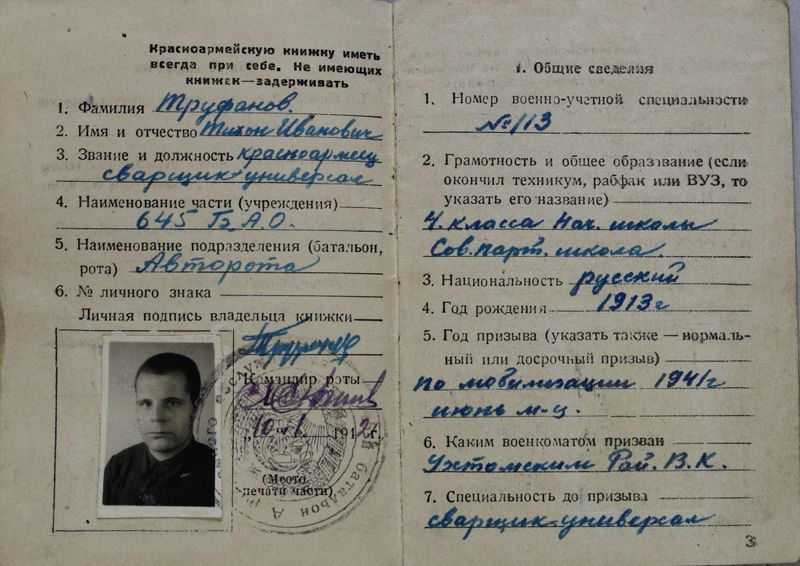 Красноармейскую книжку иметь
всегда при себе. Не имеющих
книжек—задерживать
1. Фамилия Труфанов.
2. Имя и отчество Тихон Иванович
3. Звание и должность красноармеец
сварщик-универсал
4. Наименование части (учреждения)
645 Б.А.О.
5. Наименование подразделения (батальон,
рота) Авторота
6. № личного знака
Личная подпись владельца книжки
Командир роты
„10“ 1 1942г.
(Место
печати части)
батальон А
1. Общие сведения
1. Номер военно-учетной специальности
№113
2. Грамотность и общее образование (если
окончил техникум, рабфак или ВУЗ, то
указать его название)
4. класса Нач. школы
Сов. парт. школа.
3. Национальность русский
4. Год рождения 1913г
5. Год призыва (указать также — нормаль-
ный или досрочный призыв)
по мобилизации 1941г
июнь м-ц.
6. Каким военкоматом призван
Ухтомским Рай. В. К.
7. Специальность до призыва
сварщик-универсал
3